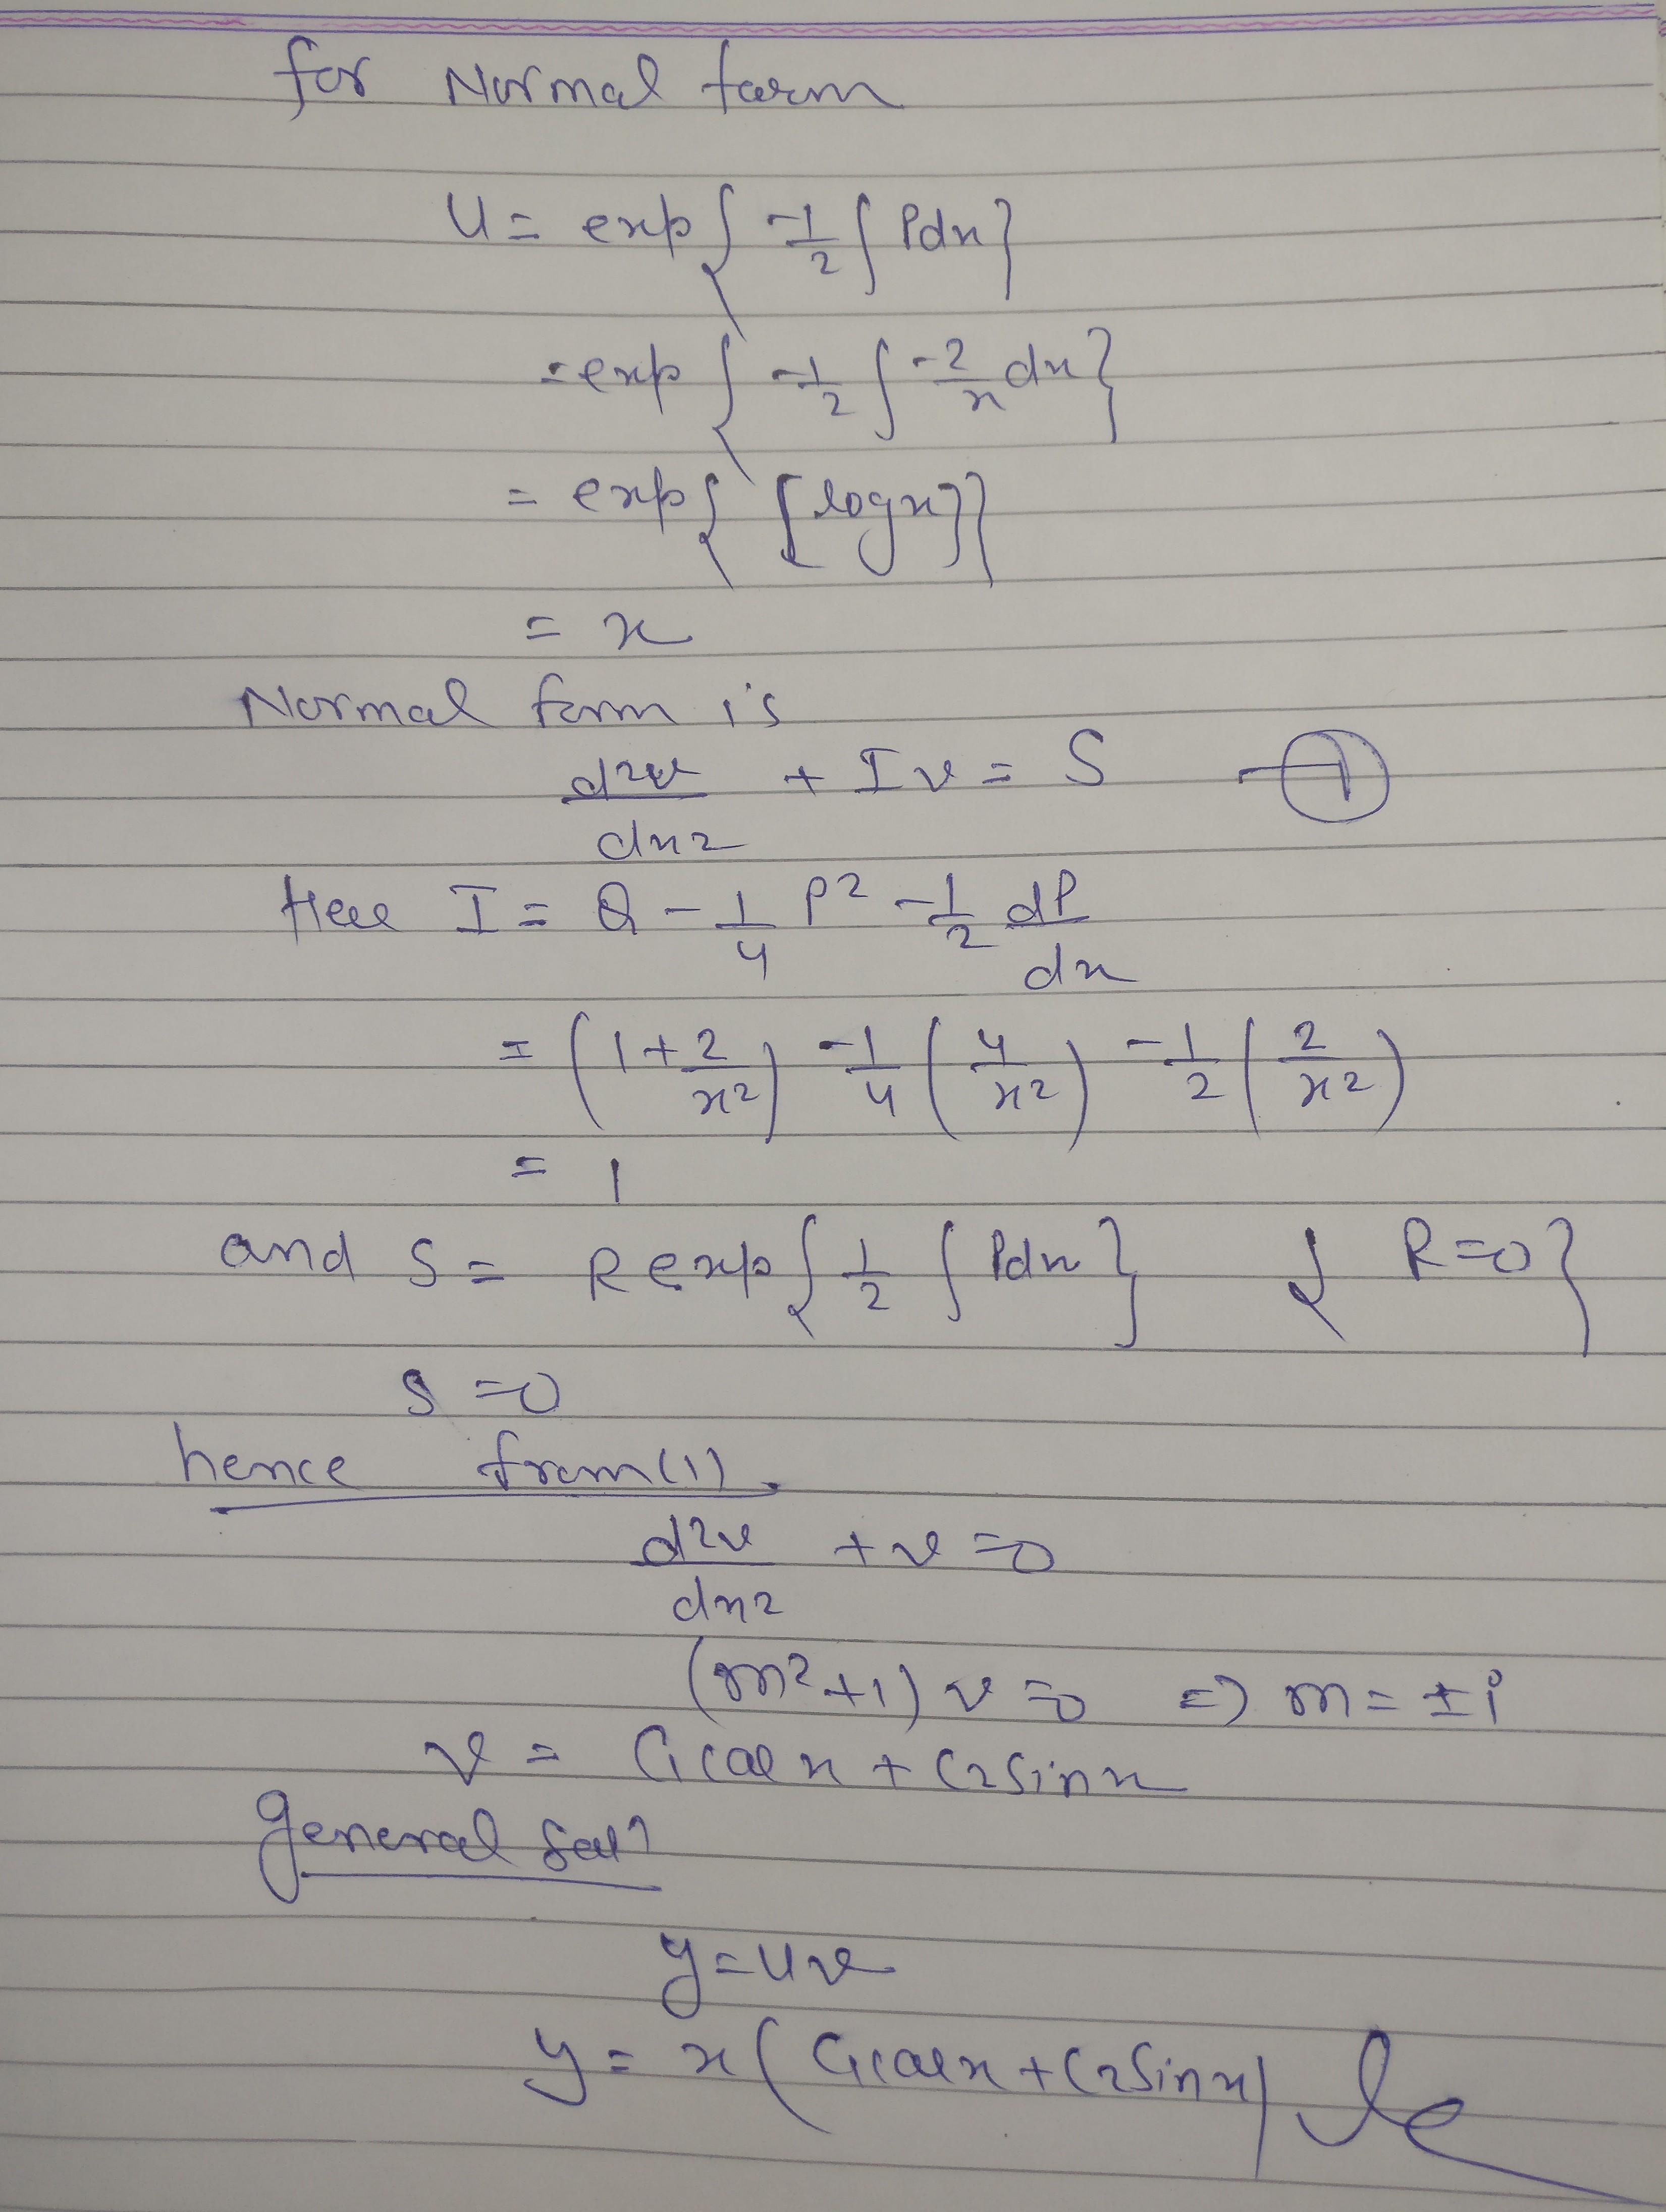 for Normal form
u = exp{ -1/2 ∫ Pdx}
= exp { -1/2 ∫ -2/x dx}
= exp{ [logx]}
= x
Normal form is
d²v/dx² + Iv = S —①
Here I = Q - 1/4 P² - 1/2 dP/dx
= (1 + 2/x²) - 1/4 (4/x²) - 1/2 (2/x²)
= 1
and S = R exp{ 1/2 ∫ Pdx} { R=0}
S = 0
hence from (1)
d²v/dx² + v = 0
(m²+1) v = 0 ⇒ m = ±i
v = C₁cosx + C₂sinx
general solⁿ
y = uv
y = x( C₁cosx + C₂sinx)